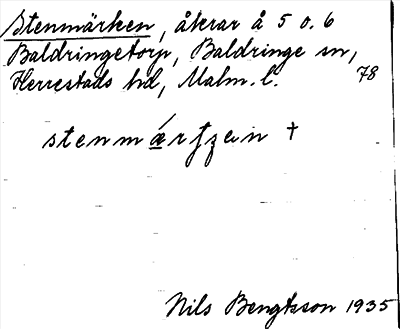 Stenmärken, åkrar å 5 o. 6
Baldringetorp, Baldringe sn,
Herrestads hd, Malm. l. 78
stenmǽrtʃein †
Nils Bengtsson 1935